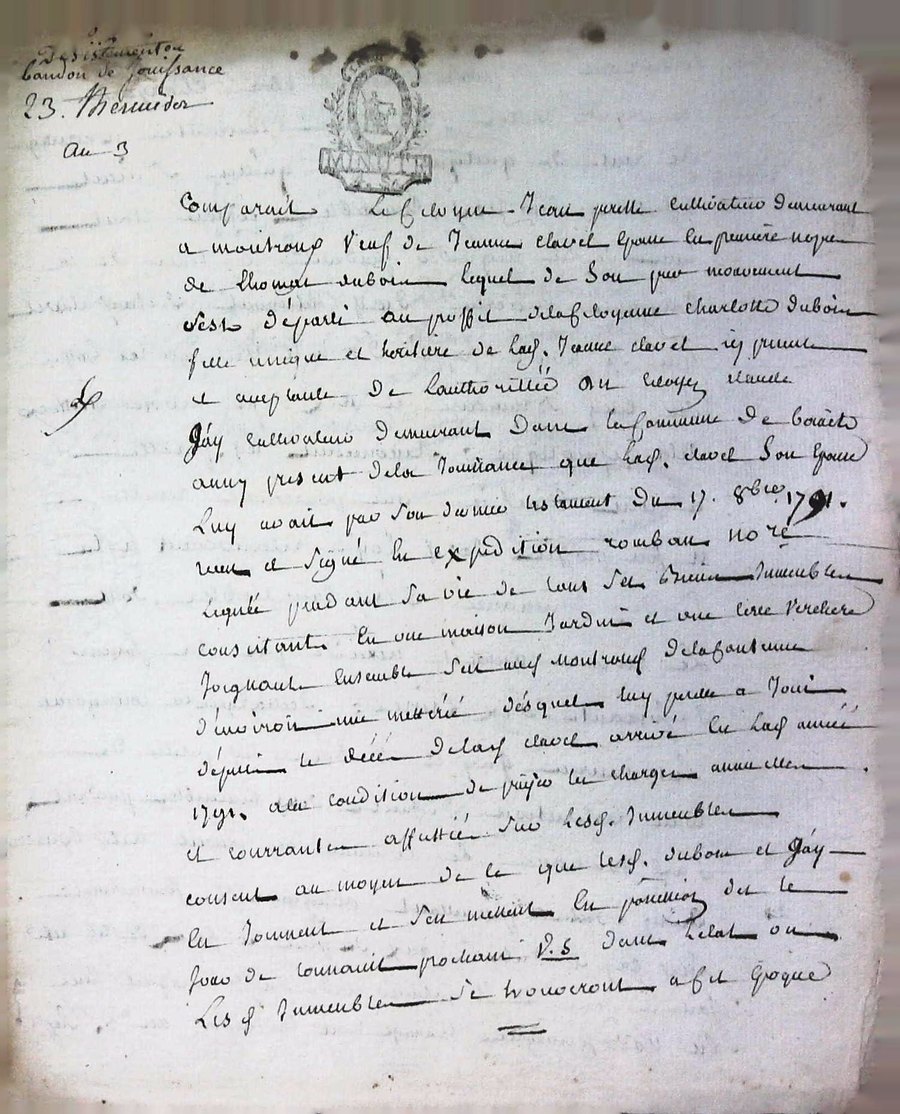 Desistement ou
bandon de jouissance
23. thermidor
an 3
Comparait Le Citoyen Jean perelle cultivateur demeurant
a montrond veuf de Jeanne clavel Epouse En premiere noppe
de thomas duboin lequel de Son pur mouvement
s'est départi au proffit dela Citoyenne charlotte duboin
fille unique et heritiere de lad. Jeanne clavel icy presente
et acceptante De Lauthorité du citoyen claude
Gáy cultivateur demeurant Dans la Commune de
aussy present dela Jouissance que lad. clavel Son Epouse
Luy avait par Son dernier testament du 17. 8bre 1791.
receu et Signé En expedition rombau nore
Leguée pendant Sa vie de tous Ses Biens Immeubles
consistant En une maison Jardin et une terre vercheré
Joignant Ensemble Sur aud. montrond dela Contenue
d'environ une metterée désquels luy perelle a Joui
dépuis le décés delad. clavel arrivé En lad. année
1791. ala condition de payer les charges annuelles
et courrantes affectées Sur Lesd. Immeubles
consent au moyen de ce que lesd. duboin et Gáy
En Jouissent et s'en mettent En possession dez le
Jour de toussaint prochain V.S dans l'etat ou
Lesd. Immeubles Se trouveront a cet Epoque